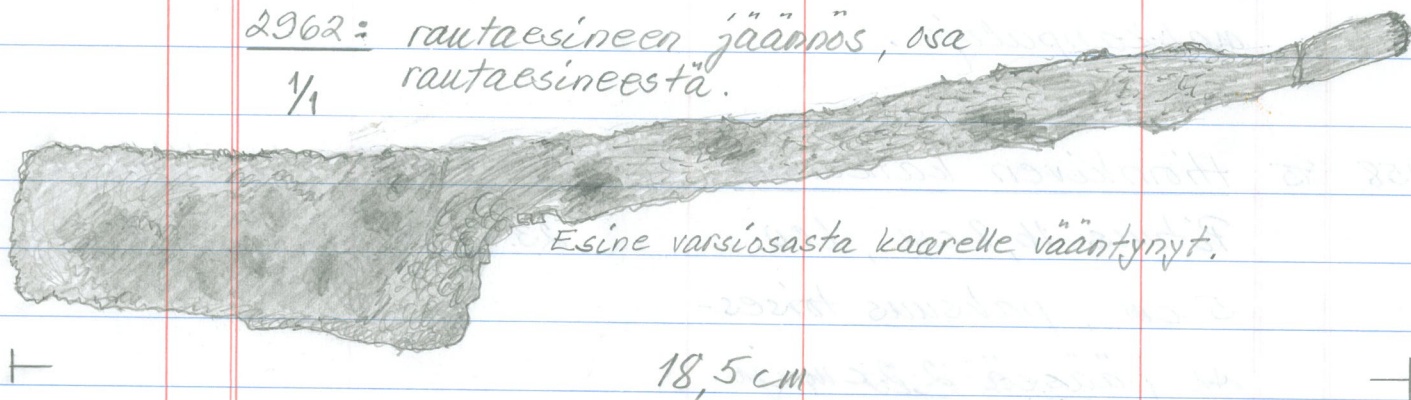 2962: rautaesineen jäännös, osa
1/1 rautaesineestä.
Esine varsiosasta kaarelle vääntynyt.
18,5 cm